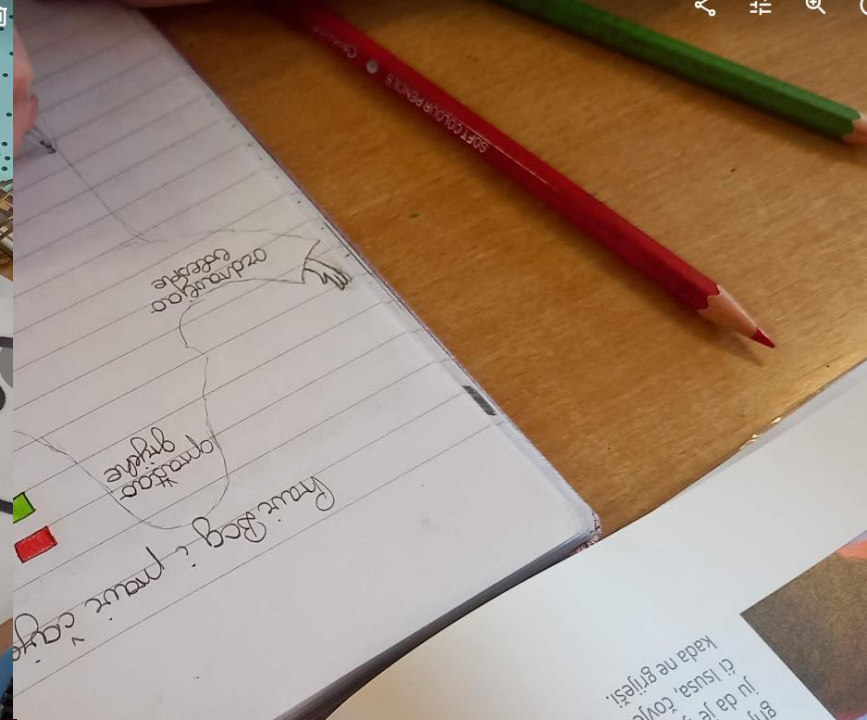 Pravi Bog i pravi čovje
opraštao
grijehe
ozdravljao
bolesne
SOFT COLOUR PENCILS
ju da je
ći Isusa, čovje
kada ne griješi.